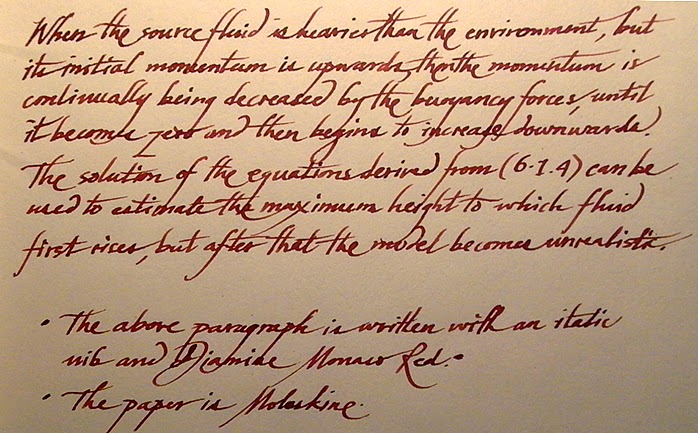 When the source fluid is heavier than the environment, but
its initial momentum is upwards, then the momentum is
continually being decreased by the buoyancy forces, until
it becomes zero and then begins to increase downwards.
The solution of the equations derived from (6.1.4) can be
used to estimate the maximum height to which fluid
first rises, but after that the model becomes unrealistic.
• The above paragraph is written with an italic
nib and Diamine Monaco Red.
• The paper is Moleskine.